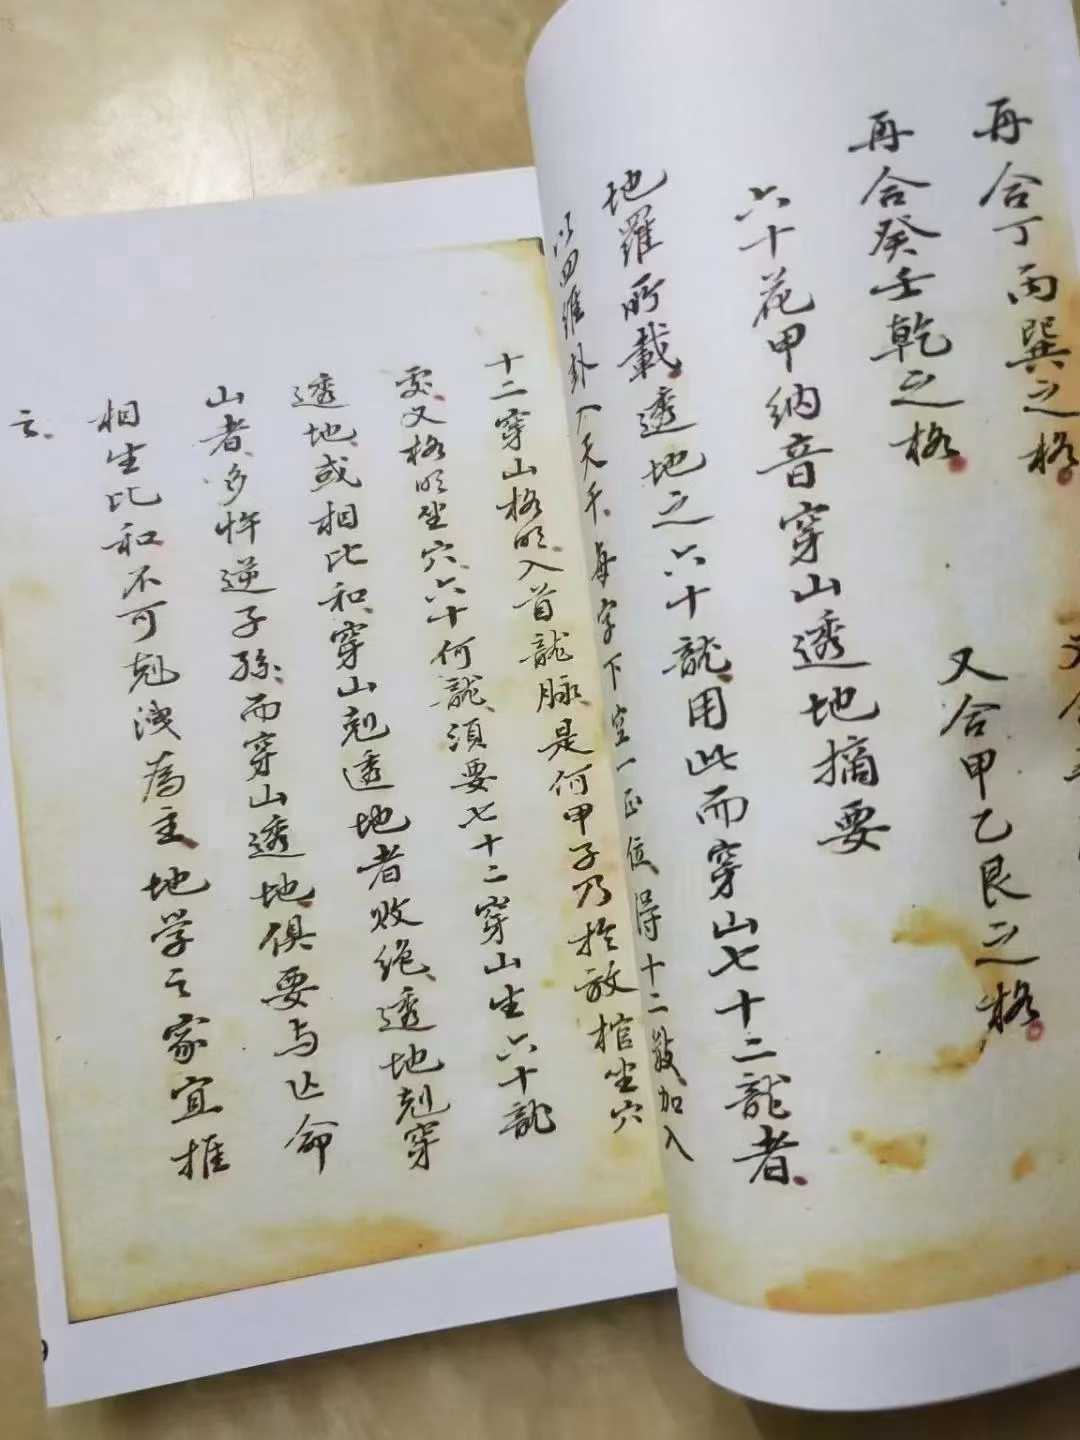 再合丁丙巽之格
再合癸壬乾之格
又合甲乙艮之格
六十花甲納音穿山透地摘要
地羅所載透地之六十龍用此而穿山七十二龍者
以四維卦八天干每字下空一正位得十二數加入
十二穿山格明入首龍脉是何甲子乃於放棺坐穴
處又格明坐穴六十何龍須要七十二穿山生六十龍
透地或相比和穿山剋透地者敗絶透地剋穿
山者多忤逆子孫而穿山透地俱要与亡命
相生比和不可剋洩為主地学之家宜推
之